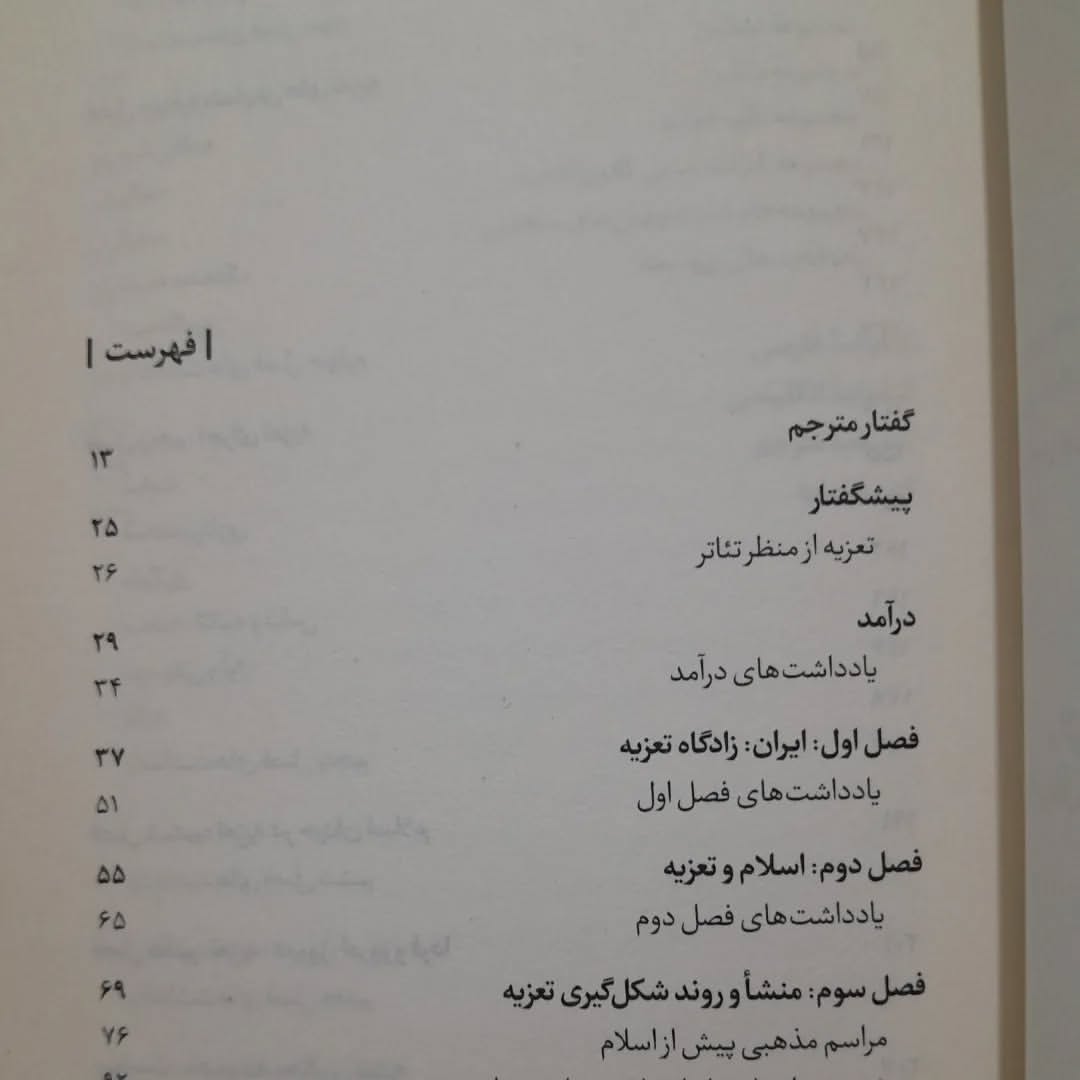 | فهرست |
گفتار مترجم ۱۳
پیشگفتار ۲۵
تعزیه از منظر تئاتر ۲۶
درآمد ۲۹
یادداشت‌های درآمد ۳۴
فصل اول: ایران: زادگاه تعزیه ۳۷
یادداشت‌های فصل اول ۵۱
فصل دوم: اسلام و تعزیه ۵۵
یادداشت‌های فصل دوم ۶۵
فصل سوم: منشأ و روند شکل‌گیری تعزیه ۶۹
مراسم مذهبی پیش از اسلام ۷۶